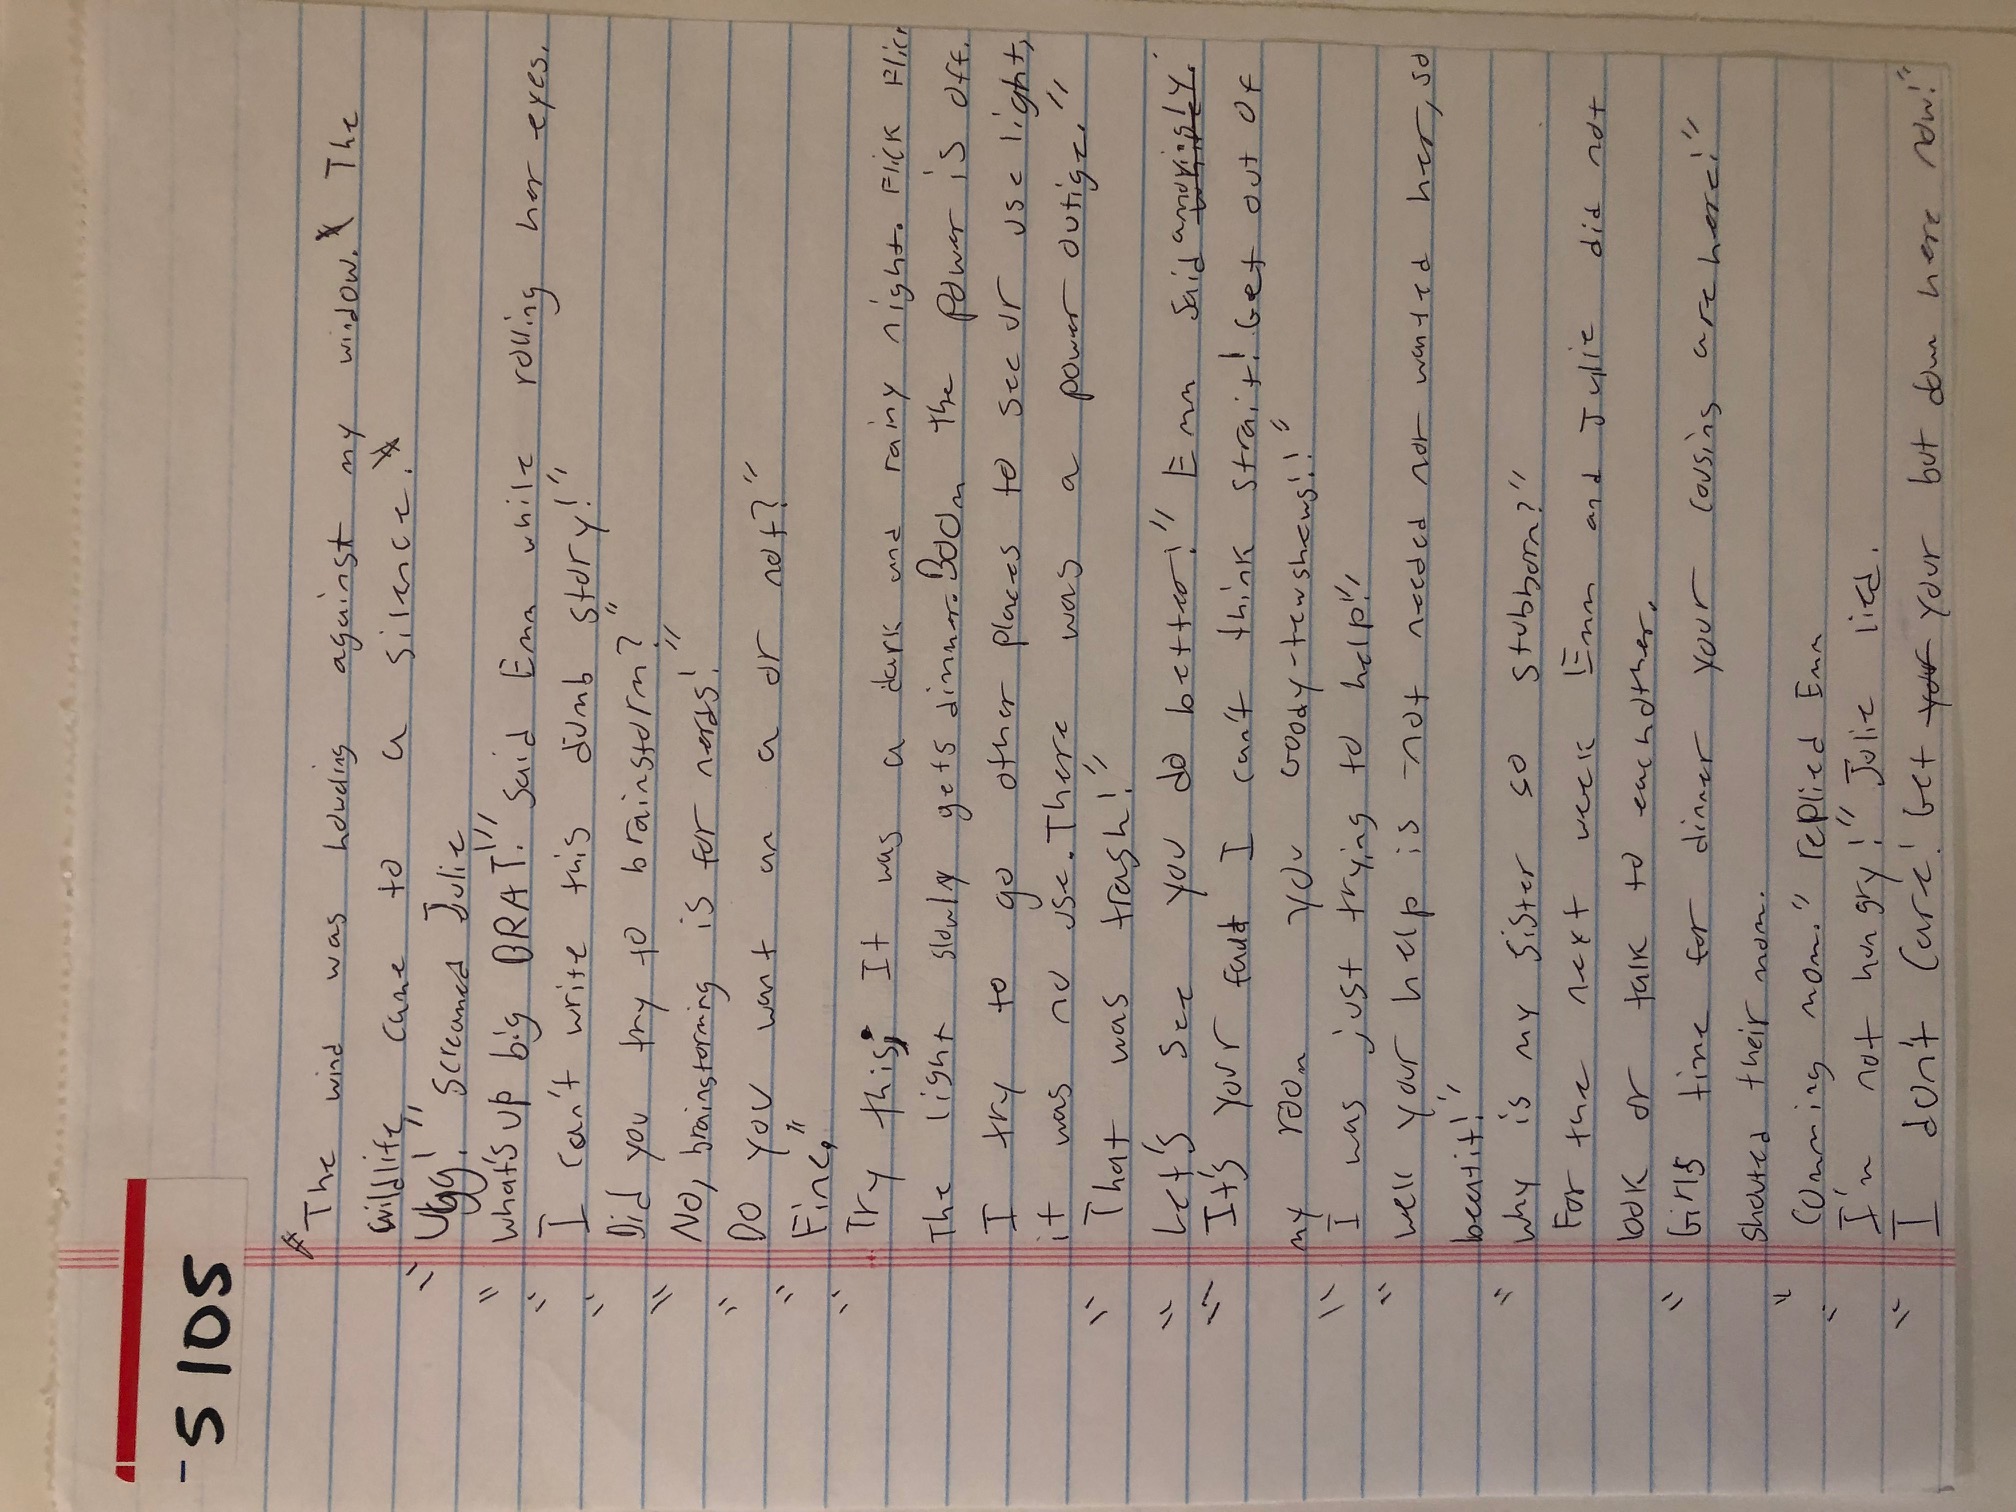 -S 105
The wind was howling against my window. The
wildlife came to a silence.
"Ugg!" screamed Julie
"What's up big BRAT!" said Emm while rolling her eyes.
"I can't write this dumb story!"
"Did you try to brainstorm?"
"No, brainstorming is for nerds!"
"Do you want an a or not?"
"Fine,"
"Try this; It was a dark and rainy night. Flick Flick
The light slowly gets dimmer. Boom the power is off.
I try to go other places to see or use light,
it was no use. There was a power outige."
"That was trash!"
"Let's see you do better!" Emm said annoyingly.
"It's your fault I can't think strait! Get out of
my room you Goody-tewshews!!"
"I was just trying to help!"
"Well your help is not needed nor wanted her, so
beatit!"
"Why is my sister so stubborn?"
For the next week Emm and Julie did not
look or talk to eachother.
"Girls time for dinner your cousins are here!"
shouted their mom.
"Comming mom." replied Emm
"I'm not hungry!" Julie lied.
"I don't care! Get your but down here now!"